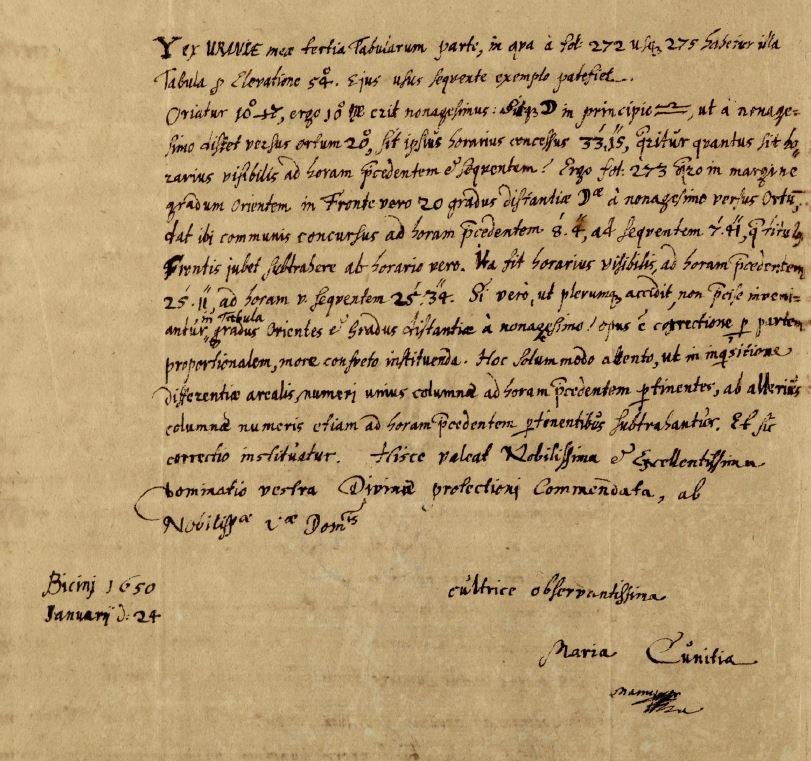 Y ex URANIÆ meæ tertia Tabularum parte, in qva à fol: 272 usq 275 habetur illa
Tabula p Elevatione 54°. Ejus usus seqvente exemplo patefiet.
Oriatur 10° ♎, ergo 10° erit nonagesimus: Sitq ☽ in principio ♎, ut à nonage-
simo distet versus ortum 20°, sit ipsius horarius concessus 33.15, qritur qvantus sit ho-
rarius visibilis ad horam pcedentem & seqventem? Ergo fol: 273 in margine
gradum Orientem in Fronte vero 20 gradus distantiæ ☽æ à nonagesimo versus Ortū,
dat ibi communis concursus ad horam pcedentem 8.4, ad seqventem 7.41, q titulus
Frontis jubet subtrahere ab horario vero. Ita fit horarius visibilis, ad horam pcedentem
25.11, ad horam v. seqventem 25.34. Si verò, ut plerumq accidit, non pcise inveni-
antur in Tabula gradus Orientes & Gradus distantiæ à nonagesimo! opus ē correctione p partem
proportionalem, more consveto instituenda. Hoc solummodo attento, ut in inqsitione
differentiæ arealis, numeri unius columnæ ad horam pcedentem ptinentes, ab alterius
columnæ numeris etiam ad horam pcedentem ptinentibus subtrahantur. Et sic
correctio instituatur. Hisce valeat Nobilissima & Excellentissima
Dominatio vestra Divinæ protectioni Commendata, ab
Nobilissæ Væ Domtis
Bicinj 1650
Januarij d: 24
cultrice observantissima
Maria Cunitia